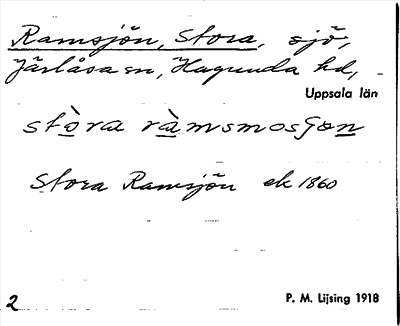 Ramsjön, Stora, sjö,
Järlåsa sn, Hagunda hd,
Uppsala län
stòra ràmsmosjon
Stora Ramsjön ek 1860
2
P. M. Lijsing 1918